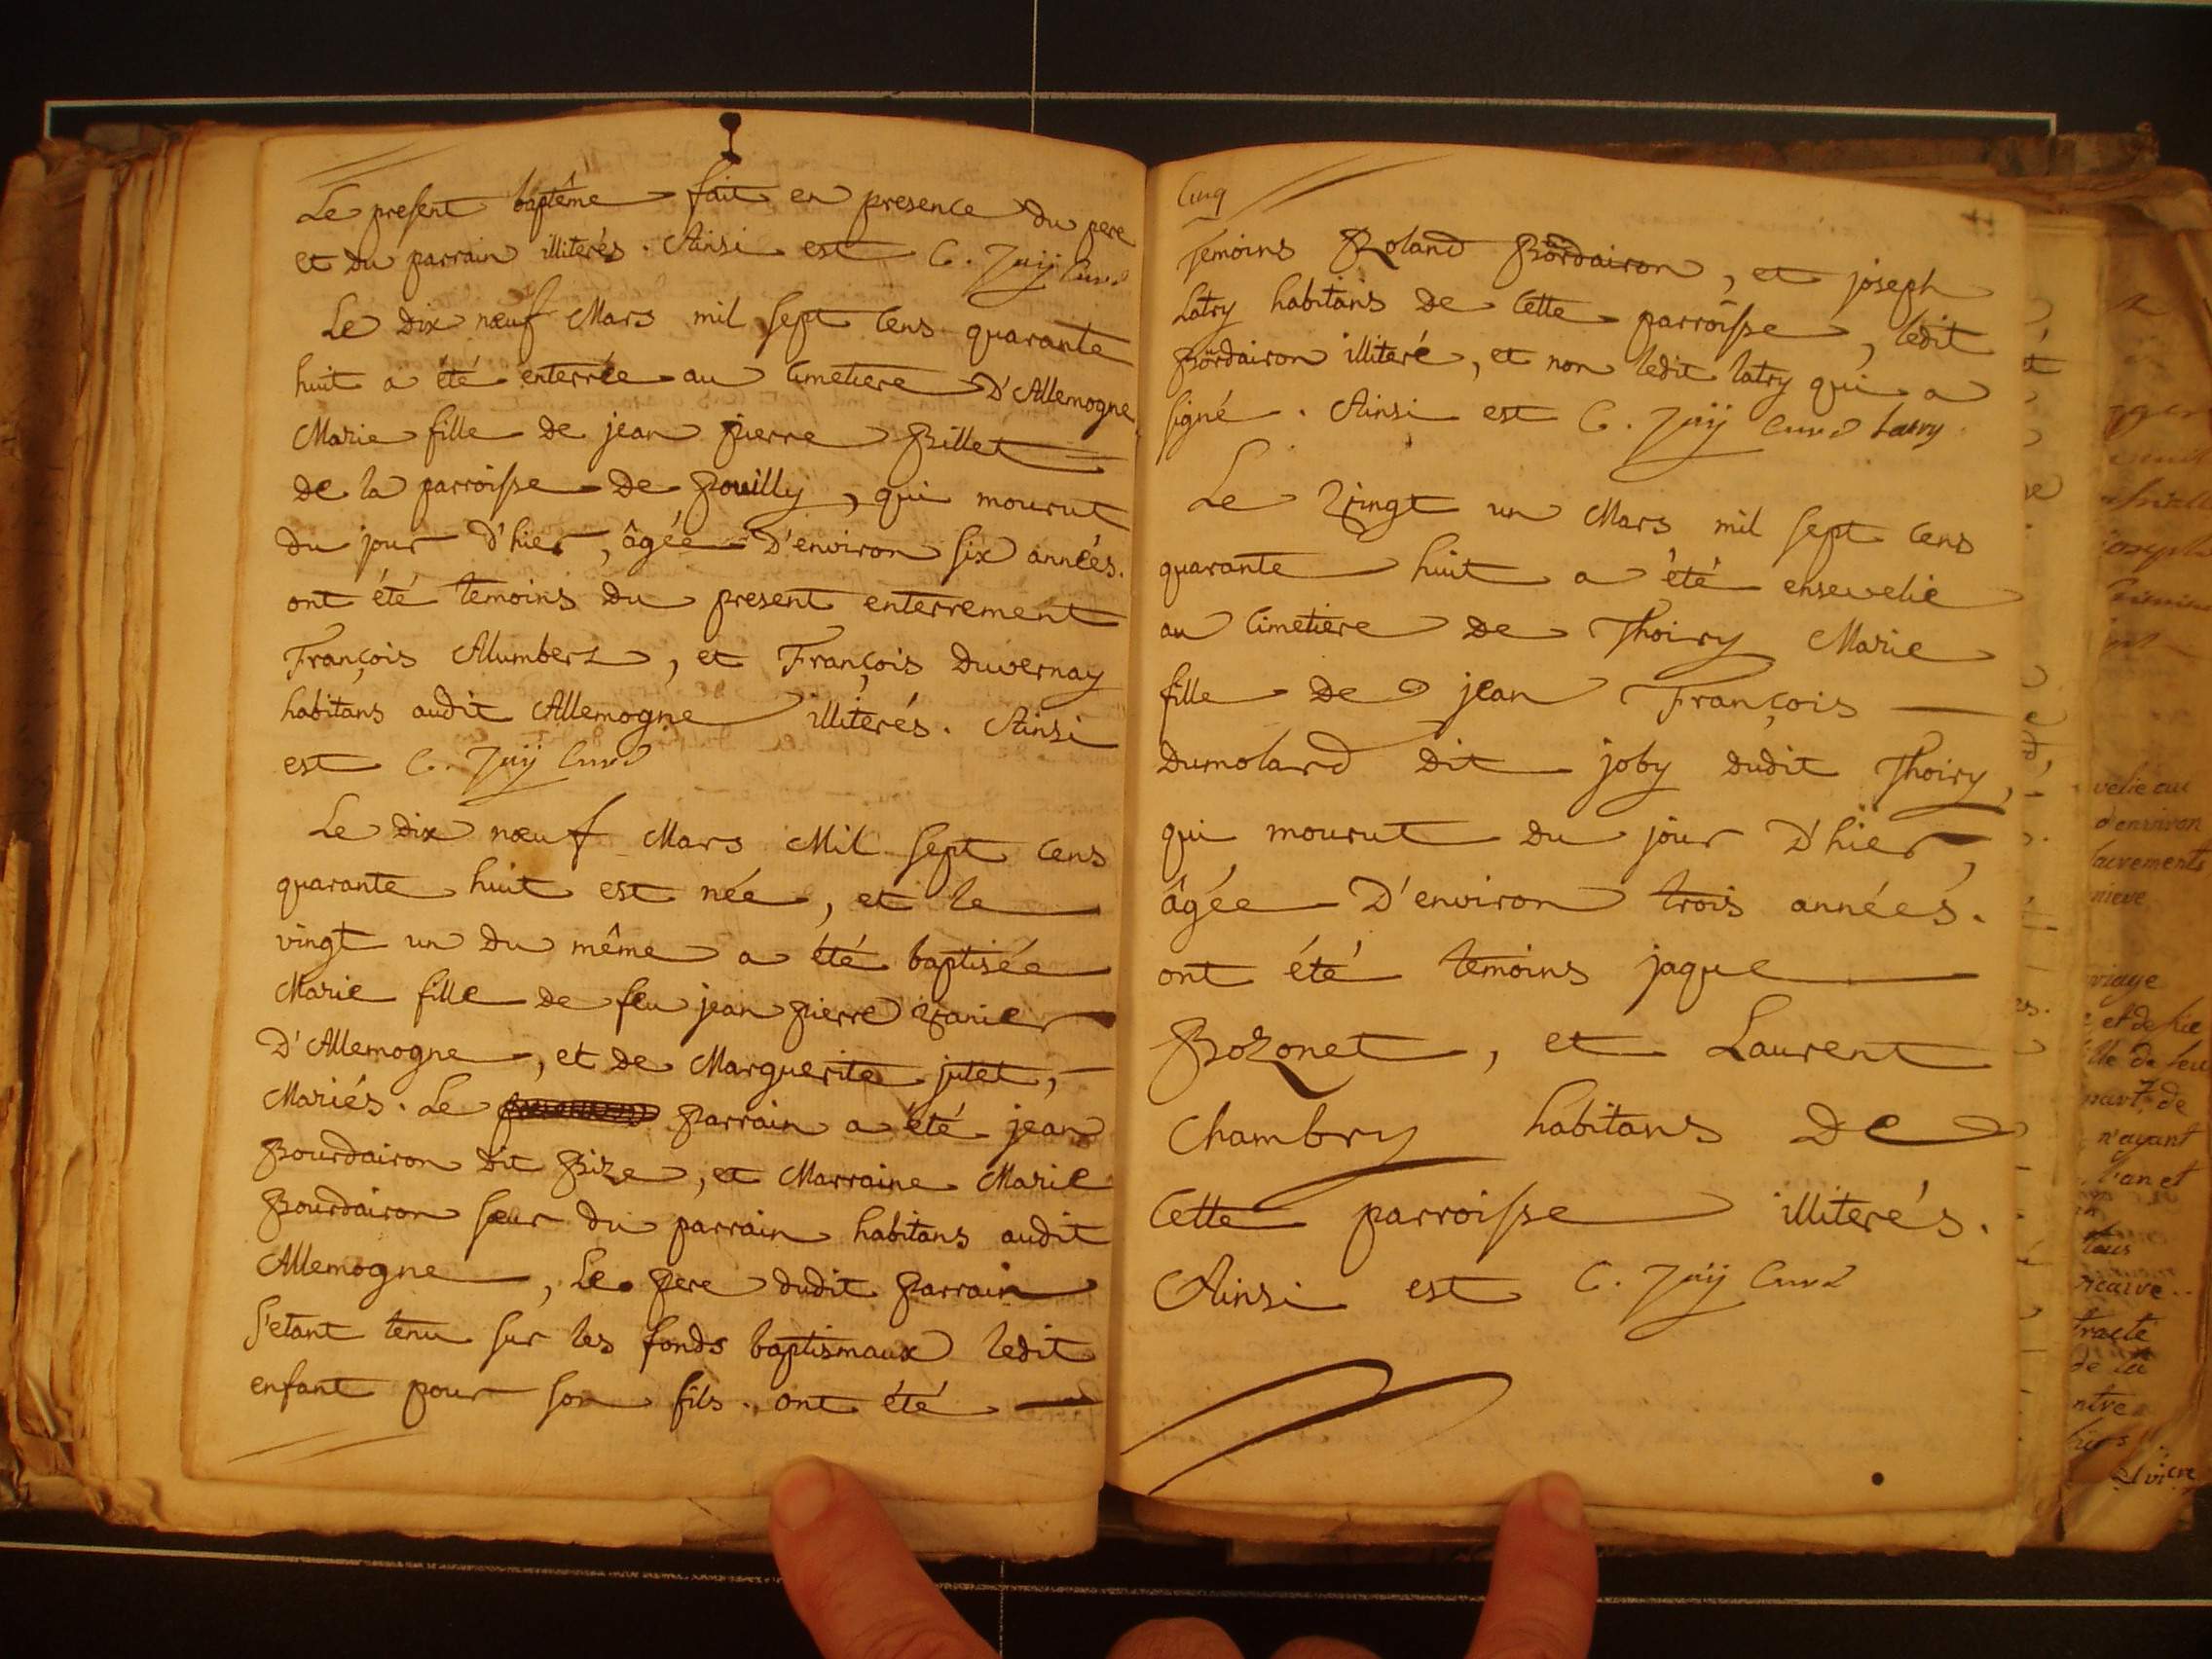 Le present baptême fait en presence du pere
et du parrain illiterés. Ainsi est C. Jaÿ Curé
Le dix nœuf Mars mil sept cens quarante
huit a été enterrée au Cimetiere D'Allemogne
Marie fille de jean Pierre Billet
de la parroisse de Pouilly, qui mourut
du jour d'hier, âgée D'environ six années.
ont été temoins du present enterrement
François Alumbert, et François Duvernay
habitans audit Allemogne illiterés. Ainsi
est C. Jaÿ Curé
Le dix nœuf Mars Mil sept cens
quarante huit est née, et le
vingt un du même a été baptisée
Marie fille de feu jean Pierre Vanier
D'Allemogne, et de Marguerite jutet,
Mariés. Le parrain a été jean
Bourdairon dit Bize, et Marraine Marie
Bourdairon sœur du parrain habitans audit
Allemogne, Le pere dudit parrain
s'etant tenu sur les fonds baptismaux ledit
enfant pour son fils. ont été
Cinq
11
Temoins Roland Bördairon, et joseph
Latry habitans de cette parroisse, ledit
Bördairon illiteré, et non ledit latry qui a
signé. Ainsi est C. Jaÿ Curé Latry
Le Vingt un Mars mil sept cens
quarante huit a été ensevelie
au Cimetiere de Thoiry Marie
fille de jean François
Dumolard dit joby dudit Thoiry,
qui mourut du jour D'hier,
âgée D'environ trois années.
ont été temoins jaque
Bozonet, et Laurent
Chambry habitans de
Cette parroisse illiterés.
Ainsi est C. Jaÿ Curé
velie au
d'environ
nieve
et de hie
n'ayant
tous
de la